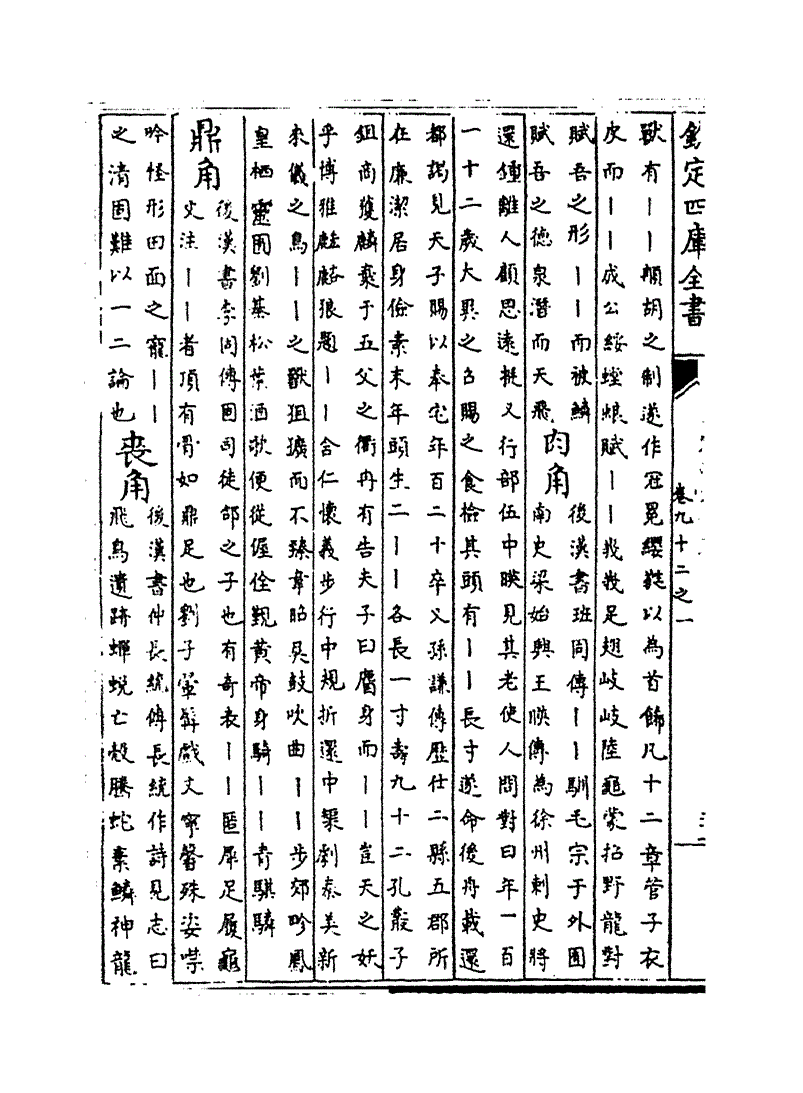 欽定四庫全書
卷九十二之一
獸有丨丨䫇胡之制遂作冠冕纓蕤以為首飾凡十二章管子衣
皮而丨丨成公綏螳蜋賦丨丨峩峩足翅岐岐陸龜蒙招野龍對
賦吾之形丨丨而被鱗
賦吾之德泉潛而天飛
肉角
後漢書班固傳丨丨馴毛宗于外囿
南史梁始興王暎傳為徐州刺史將
還鍾離人顧思遠挺义行部伍中暎見其老使人問對曰年一百
一十二歲大異之召賜之食檢其頭有丨丨長寸遂命後舟載還
都謁見天子賜以奉宅年百二十卒又孫謙傳歷仕二縣五郡所
在廉潔居身儉素末年頭生二丨丨各長一寸壽九十二孔叢子
鉏商獲麟棄于五父之衢冉有告夫子曰麕身而丨丨豈天之妖
乎博雅狼題丨丨含仁懷義步行中規折還中榘劇秦美新
來儀之鳥丨丨之獸狙獷而不臻韋昭吳鼓吹曲丨丨步郊吟鳳
皇栖靈囿劉基松葉酒歌便從偓佺覲黄帝身騎丨丨青騏驎
鼎角
後漢書李固傳固司徒郃之子也有奇表丨丨匿犀足履龜
文注丨丨者頂有骨如鼎足也劉子翬戲文寧馨殊姿喋
吟怪形田面之寵丨丨
之清固難以一二論也
喪角
後漢書仲長統傳長統作詩見志曰
飛鳥遺跡蟬蛻亡殼騰蛇棄鱗神龍